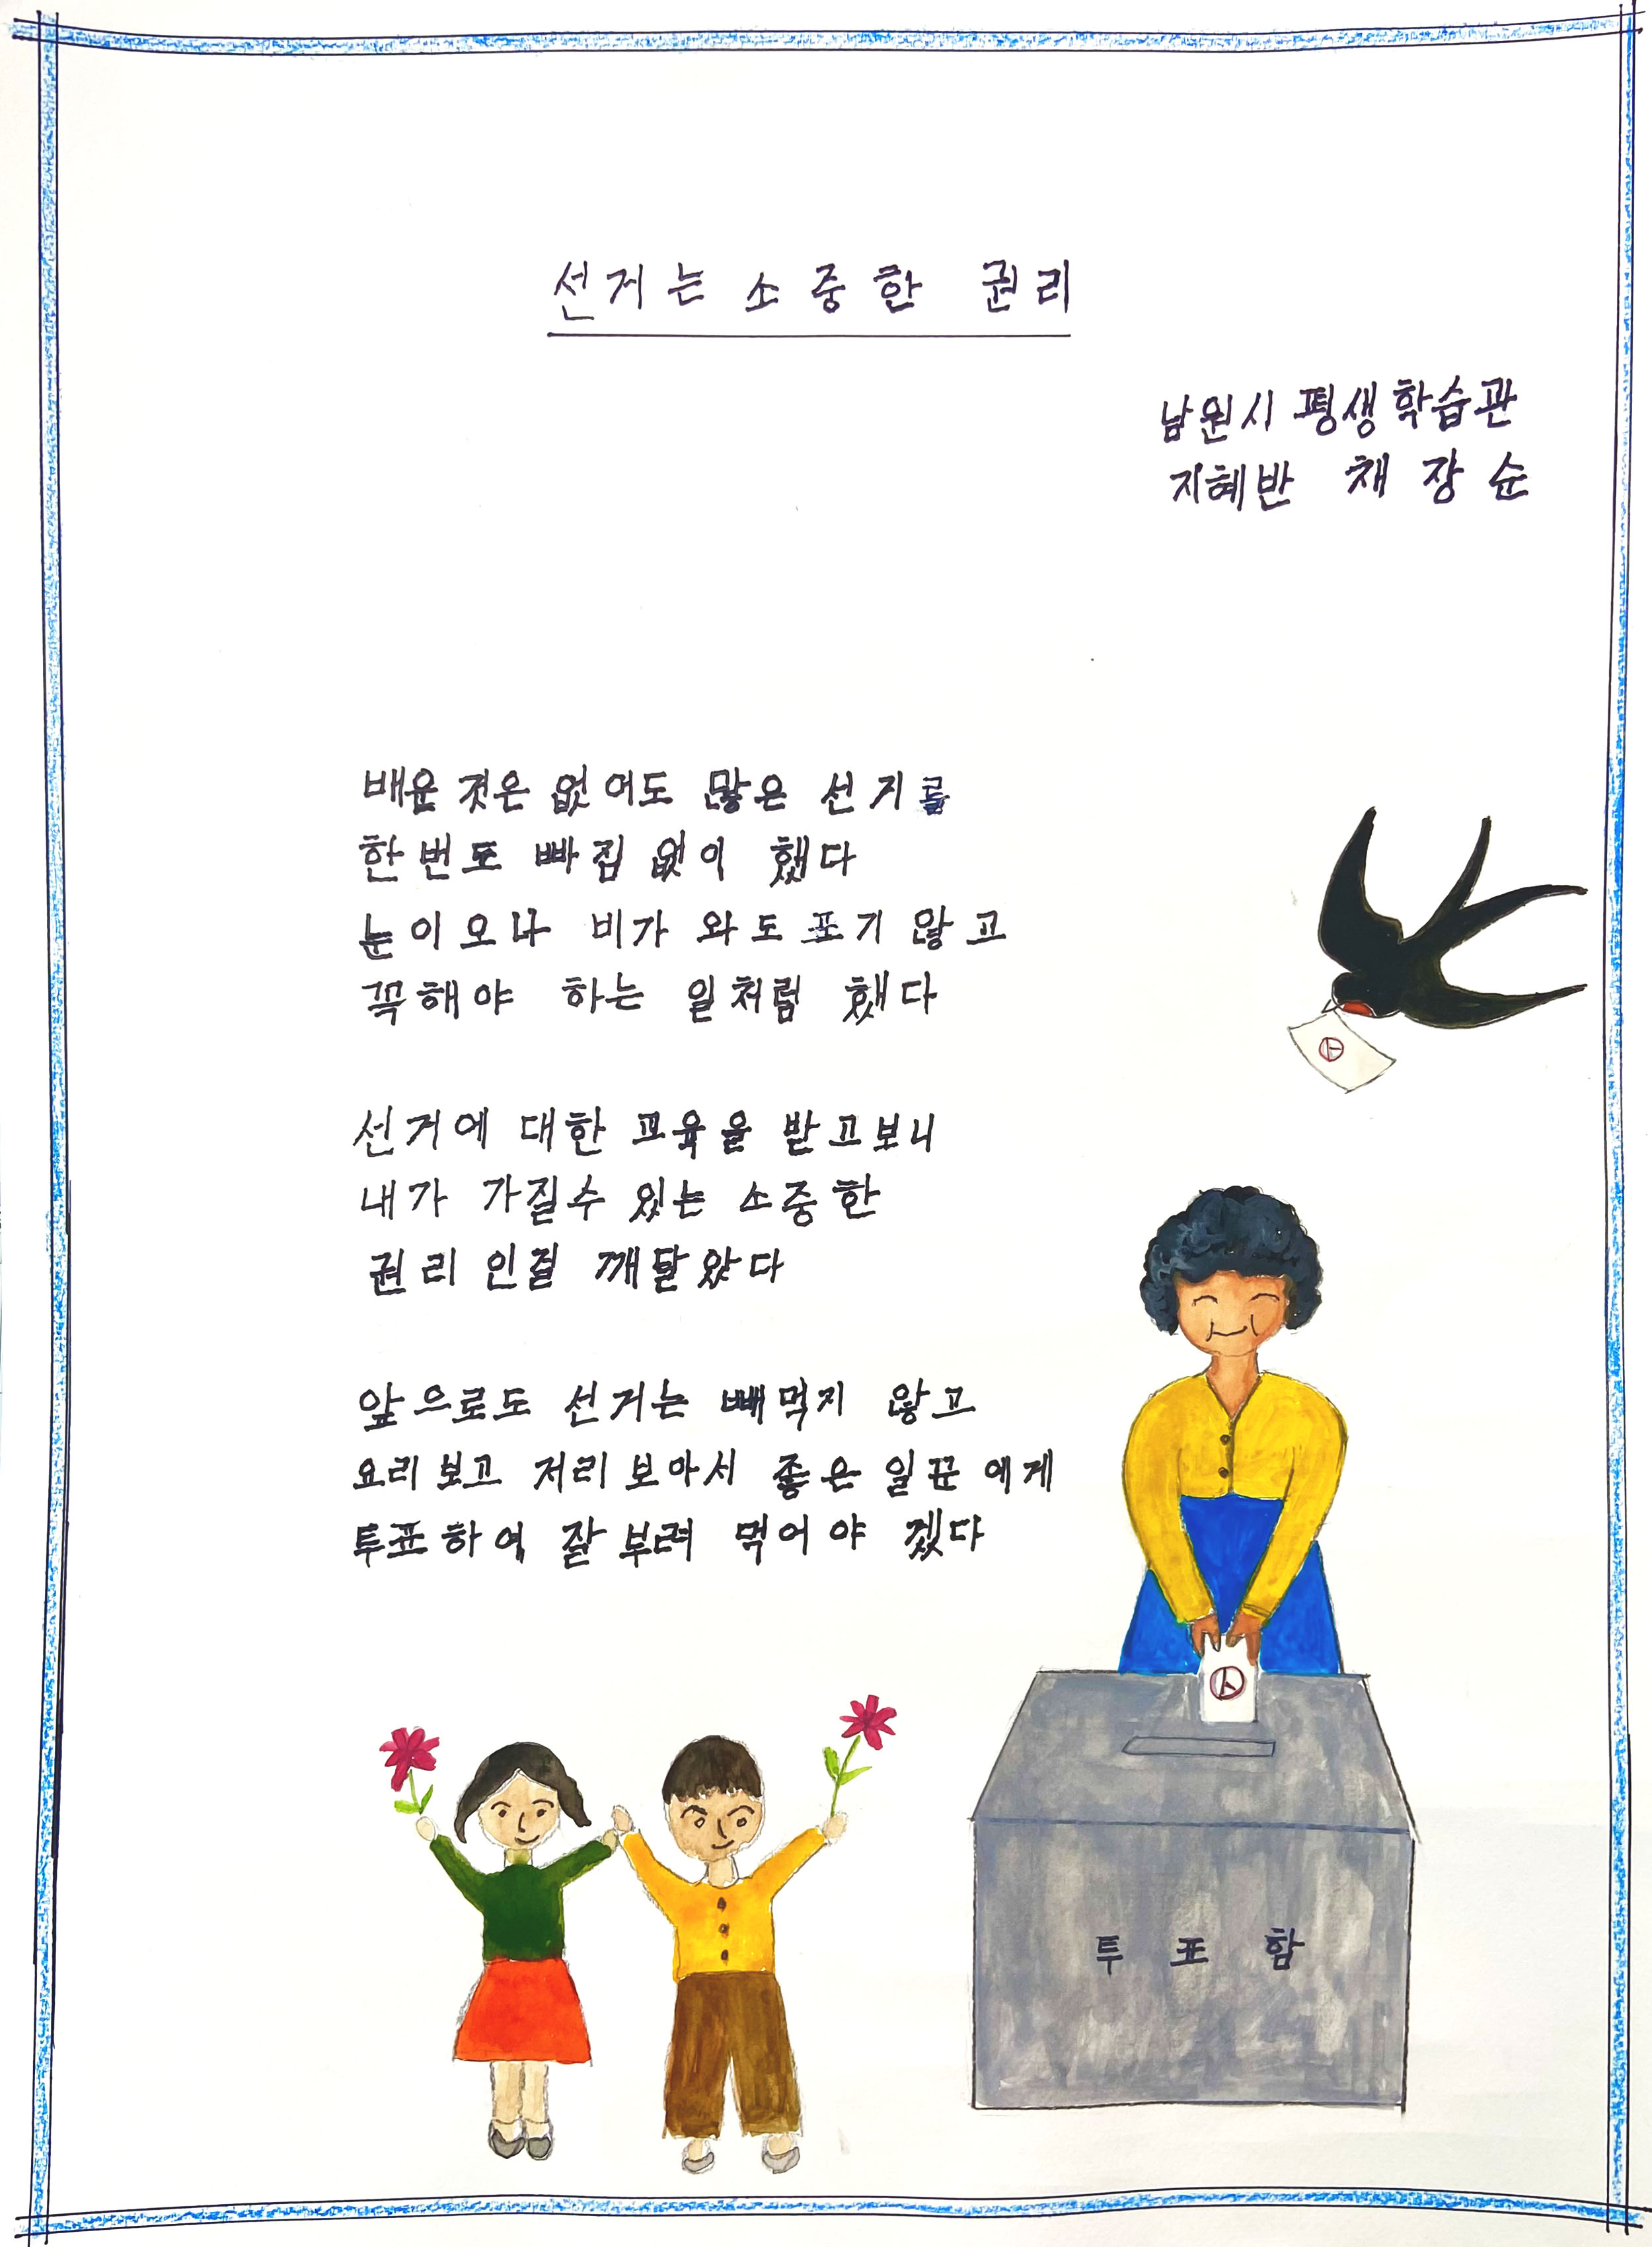 선거는 소중한 권리
남원시 평생학습관
지혜반 채장순
배운 것은 없어도 많은 선거를
한번도 빠짐 없이 했다
눈이오나 비가 와도 포기 않고
꼭해야 하는 일처럼 했다
선거에 대한 교육을 받고보니
내가 가질수 있는 소중한
권리 인걸 깨달았다
앞으로도 선거는 빼먹지 않고
요리보고 저리보아서 좋은 일꾼에게
투표하여 잘 부려 먹어야 겠다
투표함